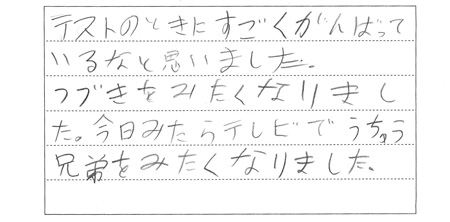 テストのときにすごくがんばって
いるなと思いました。
つづきをみたくなりまし
た。今日みたらテレビでうちゅう
兄弟をみたくなりました。